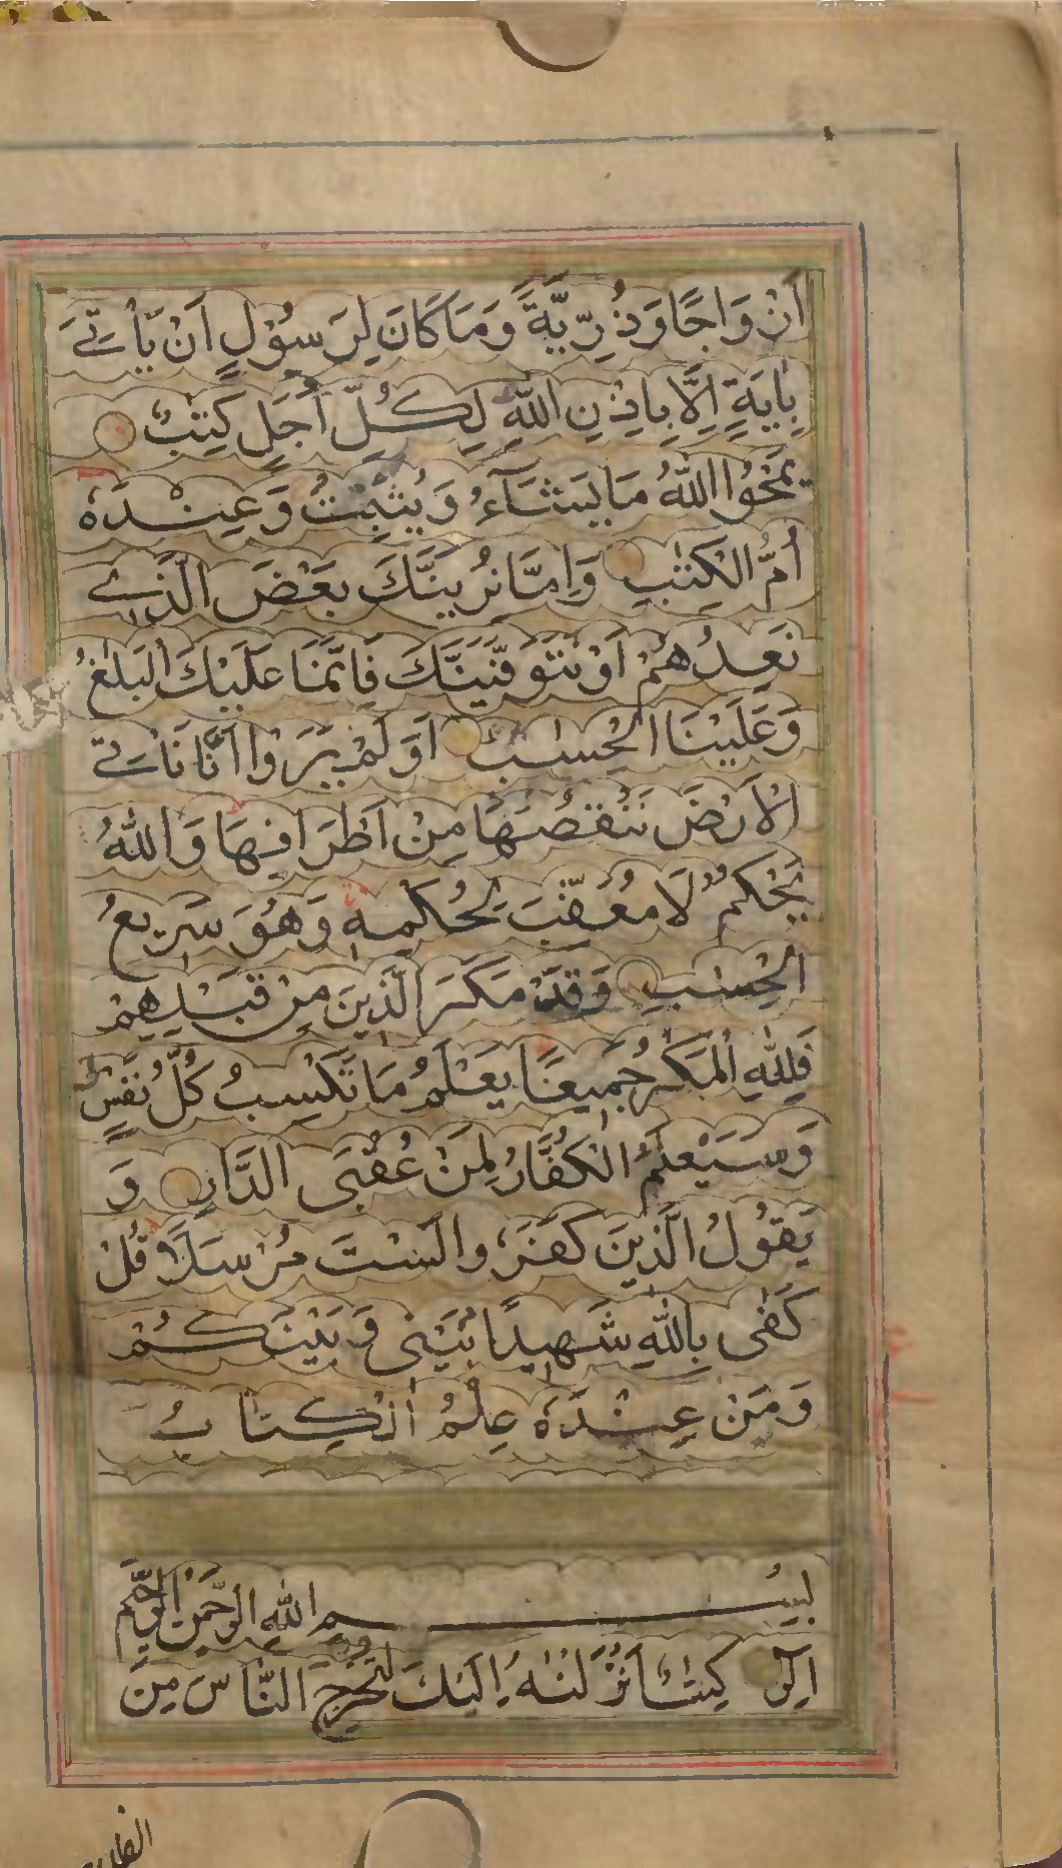 اَزْوَاجًا وَذُرِّيَّةً وَمَا كَانَ لِرَسُوْلٍ اَنْ يَّاْتِيَ
بِاٰيَةٍ اِلَّا بِاِذْنِ اللّٰهِ لِكُلِّ اَجَلٍ كِتٰبٌ
يَمْحُوا اللّٰهُ مَا يَشَآءُ وَيُثْبِتُ وَعِنْدَهٗ
اُمُّ الْكِتٰبِ وَاِمَّا نُرِيَنَّكَ بَعْضَ الَّذِيْ
نَعِدُهُمْ اَوْ نَتَوَفَّيَنَّكَ فَاِنَّمَا عَلَيْكَ الْبَلٰغُ
وَعَلَيْنَا الْحِسَابُ اَوَلَمْ يَرَوْا اَنَّا نَاْتِي
الْاَرْضَ نَنْقُصُهَا مِنْ اَطْرَافِهَا وَاللّٰهُ
يَحْكُمُ لَا مُعَقِّبَ لِحُكْمِهٖ وَهُوَ سَرِيعُ
الْحِسَابِ وَقَدْ مَكَرَ الَّذِينَ مِنْ قَبْلِهِمْ
فَلِلّٰهِ الْمَكْرُ جَمِيعًا يَعْلَمُ مَا تَكْسِبُ كُلُّ نَفْسٍ
وَسَيَعْلَمُ الْكُفَّارُ لِمَنْ عُقْبَى الدَّارِ وَ
يَقُوْلُ الَّذِينَ كَفَرُوا لَسْتَ مُرْسَلًا قُلْ
كَفٰى بِاللّٰهِ شَهِيدًا بَيْنِي وَبَيْنَكُمْ
وَمَنْ عِنْدَهٗ عِلْمُ الْكِتَابُ
بِسْمِ اللّٰهِ الرَّحْمٰنِ الرَّحِيْمِ
الٓرٰ كِتَابٌ اَنْزَلْنٰهُ اِلَيْكَ لِتُخْرِجَ النَّاسَ مِنَ